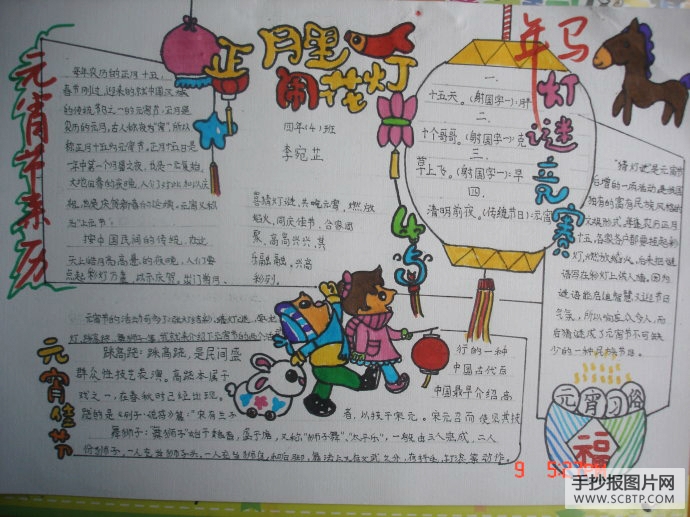 元宵节来历
正月里
闹花灯
四年(4)班
李宛芷
每年农历的正月十五,
春节刚过,迎来的就是中国
的传统节日之一的元宵节。正月是
农历的元月,古人称夜为"宵",所以
称正月十五为元宵节。正月十五日是
一年中第一个月圆之夜,也是一元复始,
大地回春的夜晚,人们
也是庆贺新春的延续。元宵又称
为"上元节"。
按中国民间的传统,在这
天上皓月高悬的夜晚,人们要
点起彩灯万盏,以示庆贺。出门赏月、
喜猜灯谜,共吃元宵,燃放
焰火,同庆佳节,合家团
聚,高高兴兴,其
乐融融。
一.
十五天。(射国字一):胖
二.
十个哥哥。(射国字一):克
三.
草上飞。(射国字一):早
四.
清明前夜。(传统节日):元宵
年马
灯谜竞赛
"猜灯谜"是元宵节
后增的一项活动,是我国
独有的富有民族风格的
文娱形式,每逢农历正月
十五,各家各户都要挂起彩
灯,燃放焰火,后来把谜
语写在彩灯上供人猜。因为
谜语能启迪智慧又迎节日
气氛,所以响应众多人,而
后猜谜成了元宵节不可缺
少的一种民族节目。
元宵佳节
元宵节的活动可多了:张灯结彩、猜灯谜、
灯、踩高跷、舞狮
踩高跷:踩高跷,是民间盛行的一种
群众性技艺表演。高跷本属于中国古代百
戏之一,在春秋时已经出现。中国最早介绍高
跷的是《列子·说符》篇:"宋有兰子者,以技干宋元。宋元召而使见其技
舞狮子:"舞狮子"始于魏晋,盛于唐,又称"狮子舞"、"太平乐",一般由三人完成,二人
元宵习俗
福
手抄报图片网
WWW.SCBTP.COM